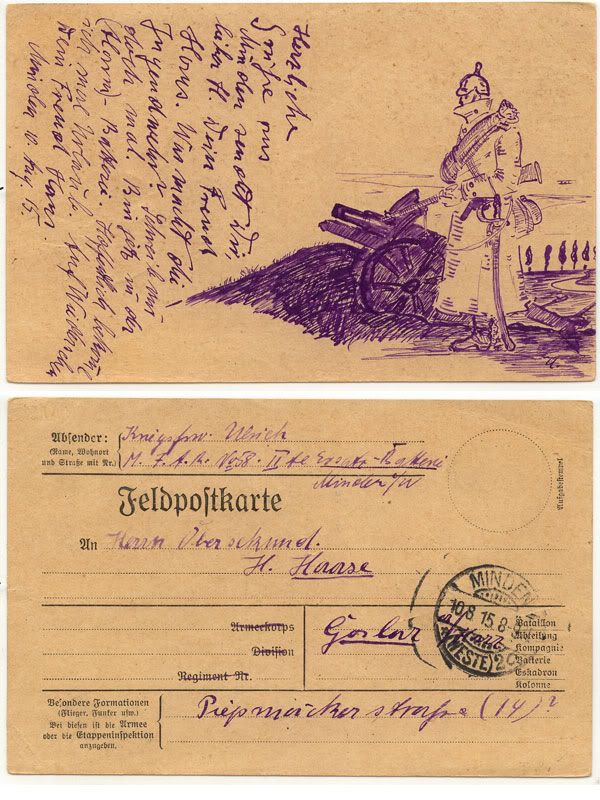 Herzliche
Grüße aus
Minden sendet Dir
lieber H. Dein Freund
Hans. Was macht die
Jugendwehr? Schreib mir
doch mal. Bin jetzt in der
Batterie. Hoffentlich bekomm
ich mal Urlaub. Auf Wiedersehn
Dein Freund Hans.
Minden 10. Aug. 15.
Absender:
(Name, Wohnort
und Straße mit Nr.)
Kriegsfrw. Ulrich
M. F. A. R. No 58. II te Ersatz-Batterie
Minden i/W
Aufgabestempel
Feldpostkarte
An Herrn Obersekund.
H. Haase
MINDEN
10.8.15.8-9
(WESTF)
Armeekorps
Division
Regiment Nr.
Goslar a/Harz
Bataillon
Abteilung
Kompagnie
Batterie
Eskadron
Kolonne
Besondere Formationen
(Flieger, Funker usw.)
Bei diesen ist die Armee
oder die Etappeninspektion
anzugeben.
Piepmäckerstraße (14)?